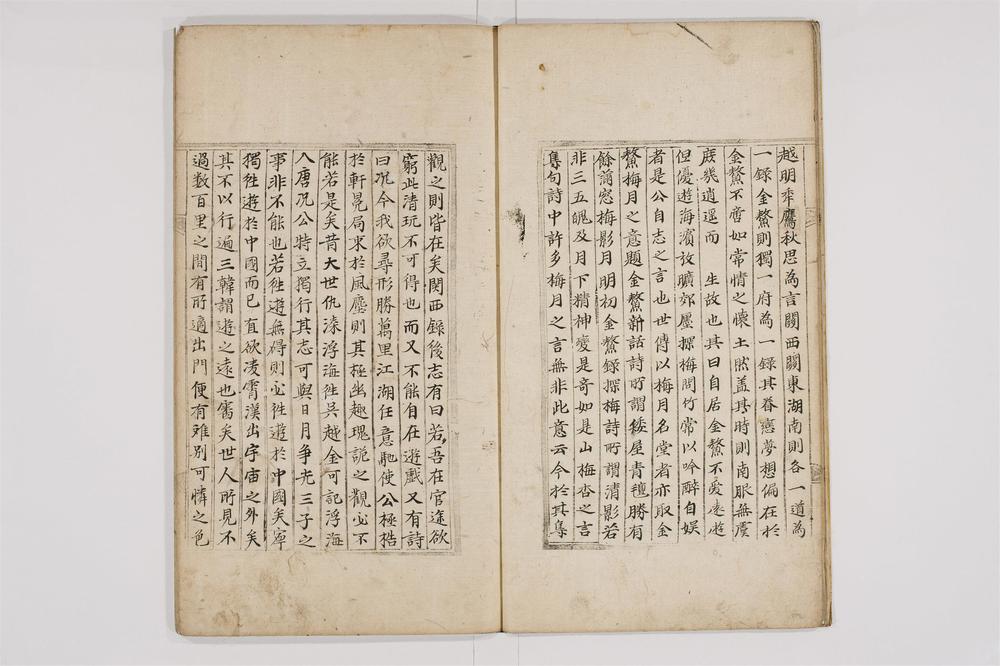 越明秊鷹秋思為言関西関東湖南則各一道為
一録金鰲則獨一府為一録其眷戀夢想偏在於
金鰲不啻如常情之懷土然盖其時則南服無虞
庶幾逍遥而 生故也其曰自居金鰲不爱遠遊
但優遊海濱放曠郊廛探梅問竹常以吟醉自娱
者是公自志之言也世傳以梅月名堂者亦取金
鰲梅月之意題金鰲新話詩所謂矮屋青氊勝有
餘滿窓梅影月明初金鰲録探梅詩所謂清影若
非三五魄及月下精神變是奇如是山梅杏之言
集句詩中許多梅月之言無非此意云今於其集
觀之則皆在矣関西録後志有曰若吾在官途欲
窮此清玩不可得也而又不能自在遊戲又有詩
曰况今我欲尋形勝萬里江湖任意馳使公極梏
於軒冕局束於風塵則其極幽趣瑰詭之觀必不
能若是矣昔大世仇漆浮海徃吳越金可記浮海
入唐况公特立獨行其志可與日月争光三子之
事非不能也若徃遊無碍則必徃遊於中國矣寧
獨徃遊於中國而已直欲凌霄漢出宇宙之外矣
其不以行遍三韓謂遊之遠也審矣世人所見不
過数百里之間有所適出門便有难别可憐之色